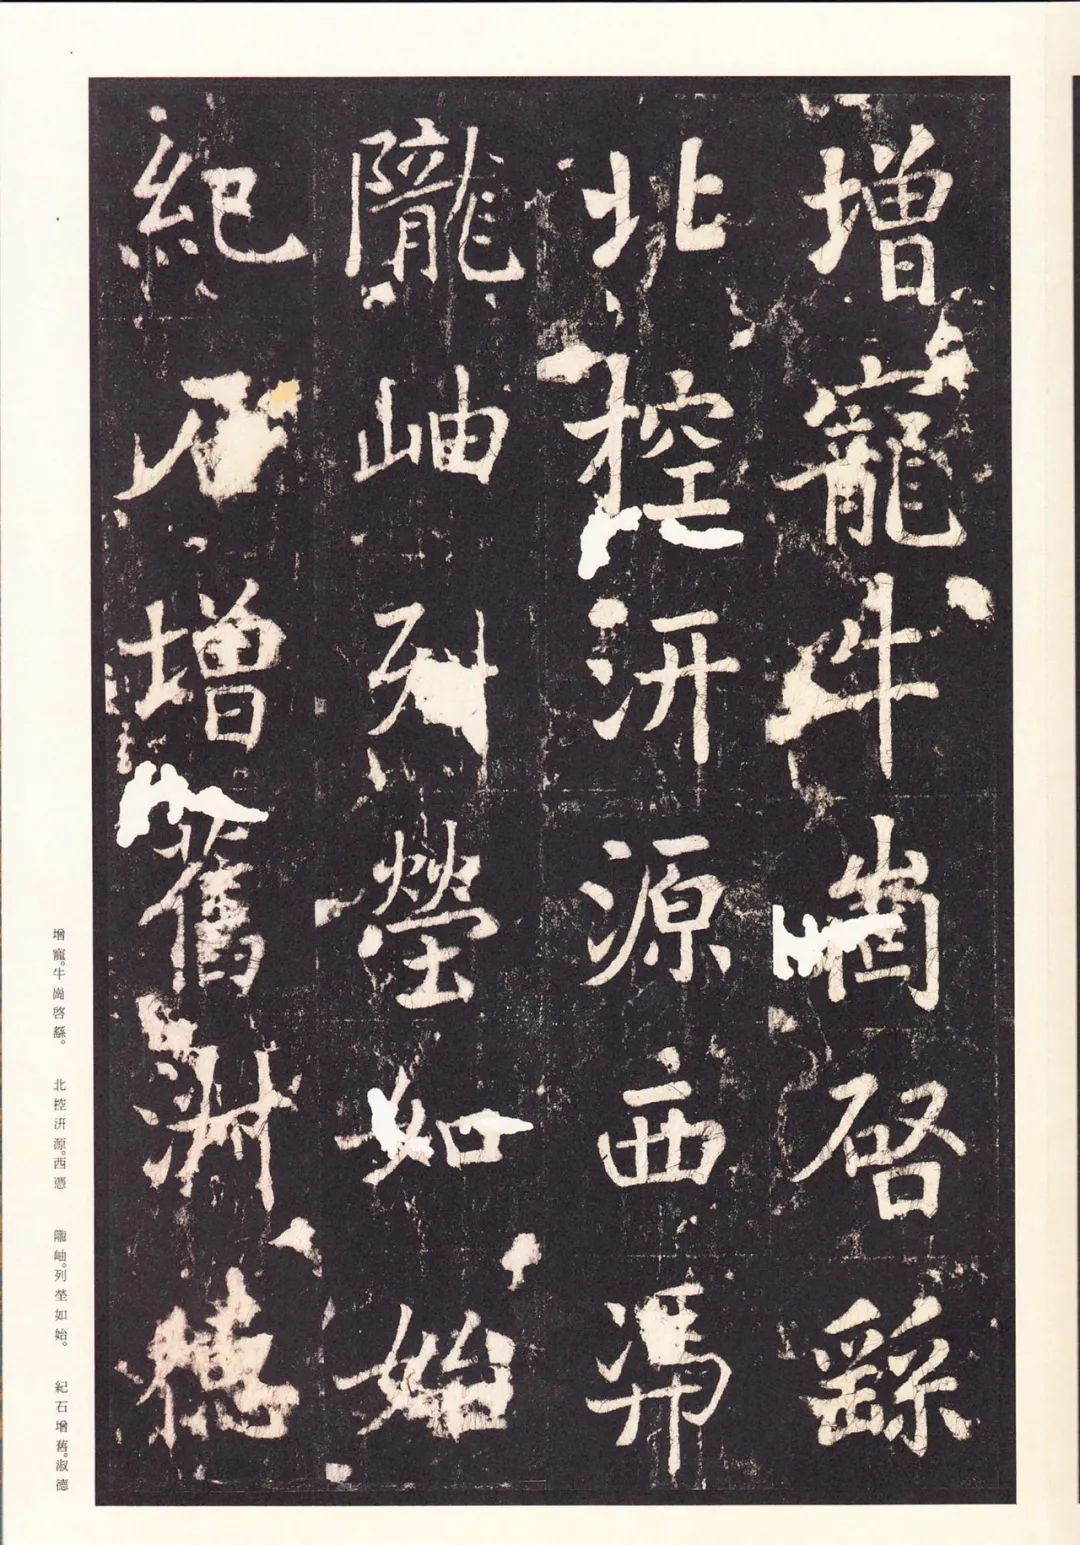 增寵牛崗啓繇
北控汧源西馮
隴岫列塋如始
紀石增舊淑德
增寵。牛崗啓繇。　北控汧源。西憑　隴岫。列塋如始。　紀石增舊。淑德